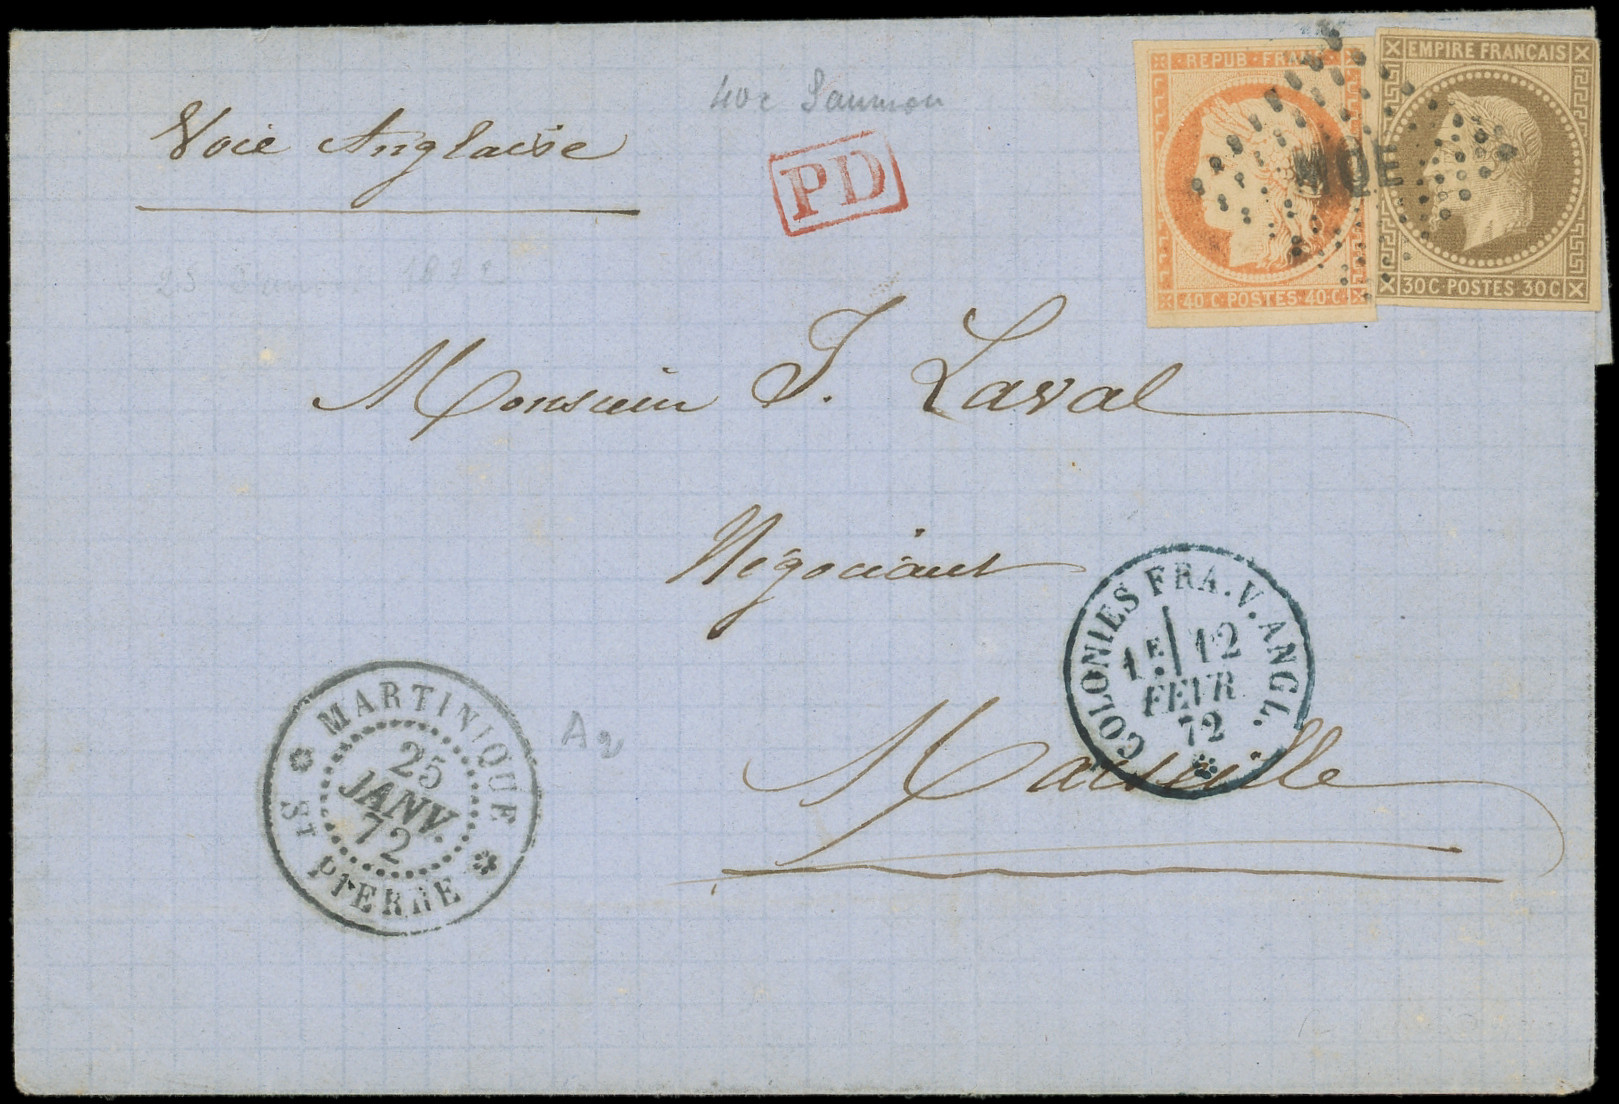 Voie Anglaise
40c Saumon
PD
REPUB · FRANC
40·C·POSTES·40·C
EMPIRE FRANÇAIS
30C·POSTES·30C
MQE
25 Janvier 1872
Monsieur J. Laval
Négociant
Marseille
COLONIES FRA. V. ANGL.
1E 12
FEVR
72
MARTINIQUE
25
JANV.
72
ST PIERRE